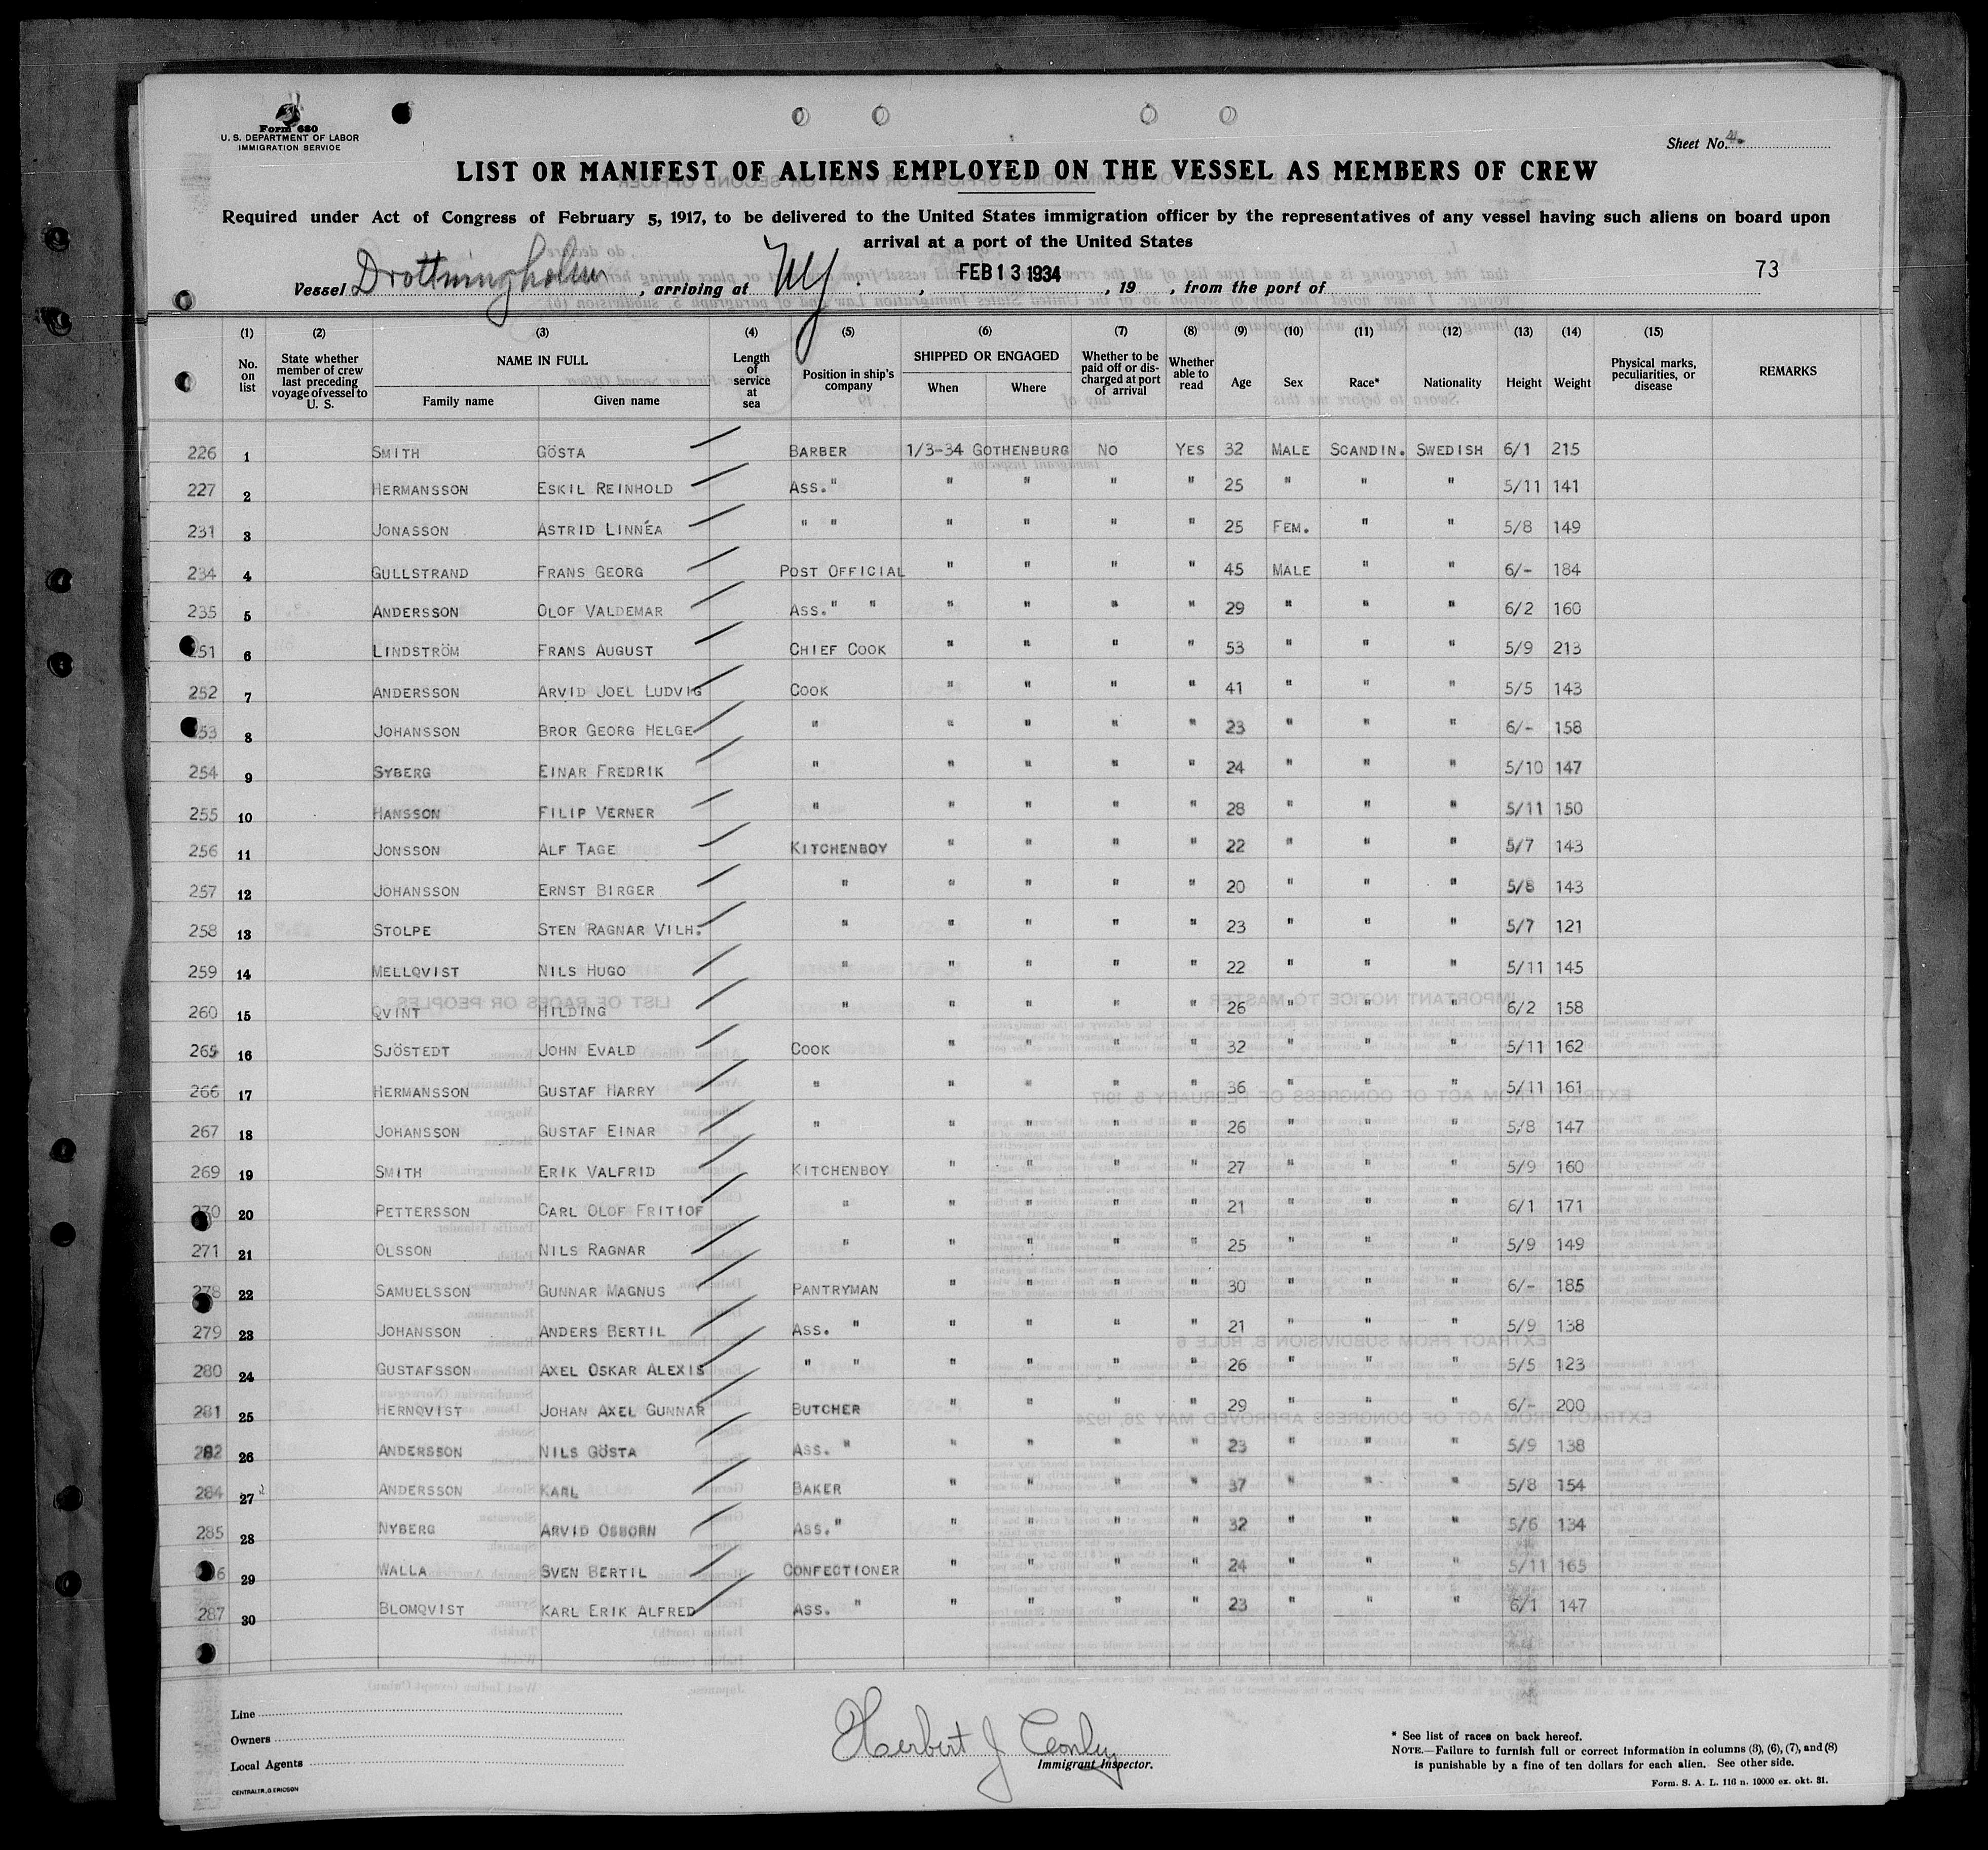 Form 680
U. S. DEPARTMENT OF LABOR
IMMIGRATION SERVICE
Sheet No. 4.
LIST OR MANIFEST OF ALIENS EMPLOYED ON THE VESSEL AS MEMBERS OF CREW
Required under Act of Congress of February 5, 1917, to be delivered to the United States immigration officer by the representatives of any vessel having such aliens on board upon
arrival at a port of the United States
Vessel Drottningholm, arriving at NY, FEB 13 1934, 19 , from the port of 73
(1) (2) (3) (4) (5) (6) (7) (8) (9) (10) (11) (12) (13) (14) (15)
No. on list | State whether member of crew last preceding voyage of vessel to U. S. | NAME IN FULL Family name Given name | Length of service at sea | Position in ship's company | SHIPPED OR ENGAGED When Where | Whether to be paid off or discharged at port of arrival | Whether able to read | Age | Sex | Race* | Nationality | Height | Weight | Physical marks, peculiarities, or disease | REMARKS
226 1 SMITH GÖSTA BARBER 1/3-34 GOTHENBURG NO YES 32 MALE SCANDIN. SWEDISH 6/1 215
227 2 HERMANSSON ESKIL REINHOLD ASS. " " " " " 25 " " " 5/11 141
231 3 JONASSON ASTRID LINNÉA " " " " " " 25 FEM. " " 5/8 149
234 4 GULLSTRAND FRANS GEORG POST OFFICIAL " " " " 45 MALE " " 6/- 184
235 5 ANDERSSON OLOF VALDEMAR ASS. " " " " " " 29 " " " 6/2 160
251 6 LINDSTRÖM FRANS AUGUST CHIEF COOK " " " " 53 " " " 5/9 213
252 7 ANDERSSON ARVID JOEL LUDVIG COOK " " " " 41 " " " 5/5 143
253 8 JOHANSSON BROR GEORG HELGE " " " " " 23 " " " 6/- 158
254 9 SYBERG EINAR FREDRIK " " " " " 24 " " " 5/10 147
255 10 HANSSON FILIP VERNER " " " " " 28 " " " 5/11 150
256 11 JONSSON ALF TAGE KITCHENBOY " " " " 22 " " " 5/7 143
257 12 JOHANSSON ERNST BIRGER " " " " " 20 " " " 5/8 143
258 13 STOLPE STEN RAGNAR VILH. " " " " " 23 " " " 5/7 121
259 14 MELLQVIST NILS HUGO " " " " " 22 " " " 5/11 145
260 15 QVINT HILDING " " " " " 26 " " " 6/2 158
265 16 SJÖSTEDT JOHN EVALD COOK " " " " 32 " " " 5/11 162
266 17 HERMANSSON GUSTAF HARRY " " " " " 36 " " " 5/11 161
267 18 JOHANSSON GUSTAF EINAR " " " " " 26 " " " 5/8 147
269 19 SMITH ERIK VALFRID KITCHENBOY " " " " 27 " " " 5/9 160
270 20 PETTERSSON CARL OLOF FRITIOF " " " " " 21 " " " 6/1 171
271 21 OLSSON NILS RAGNAR " " " " " 25 " " " 5/9 149
278 22 SAMUELSSON GUNNAR MAGNUS PANTRYMAN " " " " 30 " " " 6/- 185
279 23 JOHANSSON ANDERS BERTIL ASS. " " " " " 21 " " " 5/9 138
280 24 GUSTAFSSON AXEL OSKAR ALEXIS " " " " " " 26 " " " 5/5 123
281 25 HERNQVIST JOHAN AXEL GUNNAR BUTCHER " " " " 29 " " " 6/- 200
282 26 ANDERSSON NILS GÖSTA ASS. " " " " " 23 " " " 5/9 138
284 27 ANDERSSON KARL BAKER " " " " 37 " " " 5/8 154
285 28 NYBERG ARVID OSBORN ASS. " " " " " 32 " " " 5/6 134
29 WALLA SVEN BERTIL CONFECTIONER " " " " 24 " " " 5/11 165
287 30 BLOMQVIST KARL ERIK ALFRED ASS. " " " " " 23 " " " 6/1 147
Line
Owners
Local Agents
CENTRALTR, G. ERICSON
Herbert J Conley
Immigrant Inspector.
* See list of races on back hereof.
NOTE.—Failure to furnish full or correct information in columns (3), (6), (7), and (8)
is punishable by a fine of ten dollars for each alien. See other side.
Form. S. A. L. 116 n. 10000 ex. okt. 31.